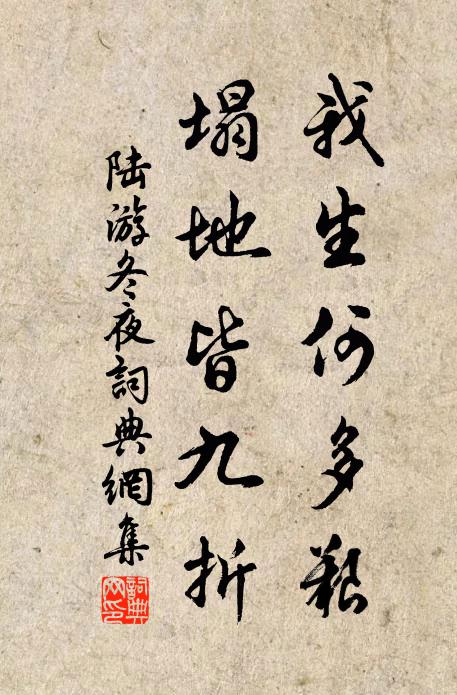 我生何多艱
塌地皆九折
陆游冬夜詞典網集
詞典
网印